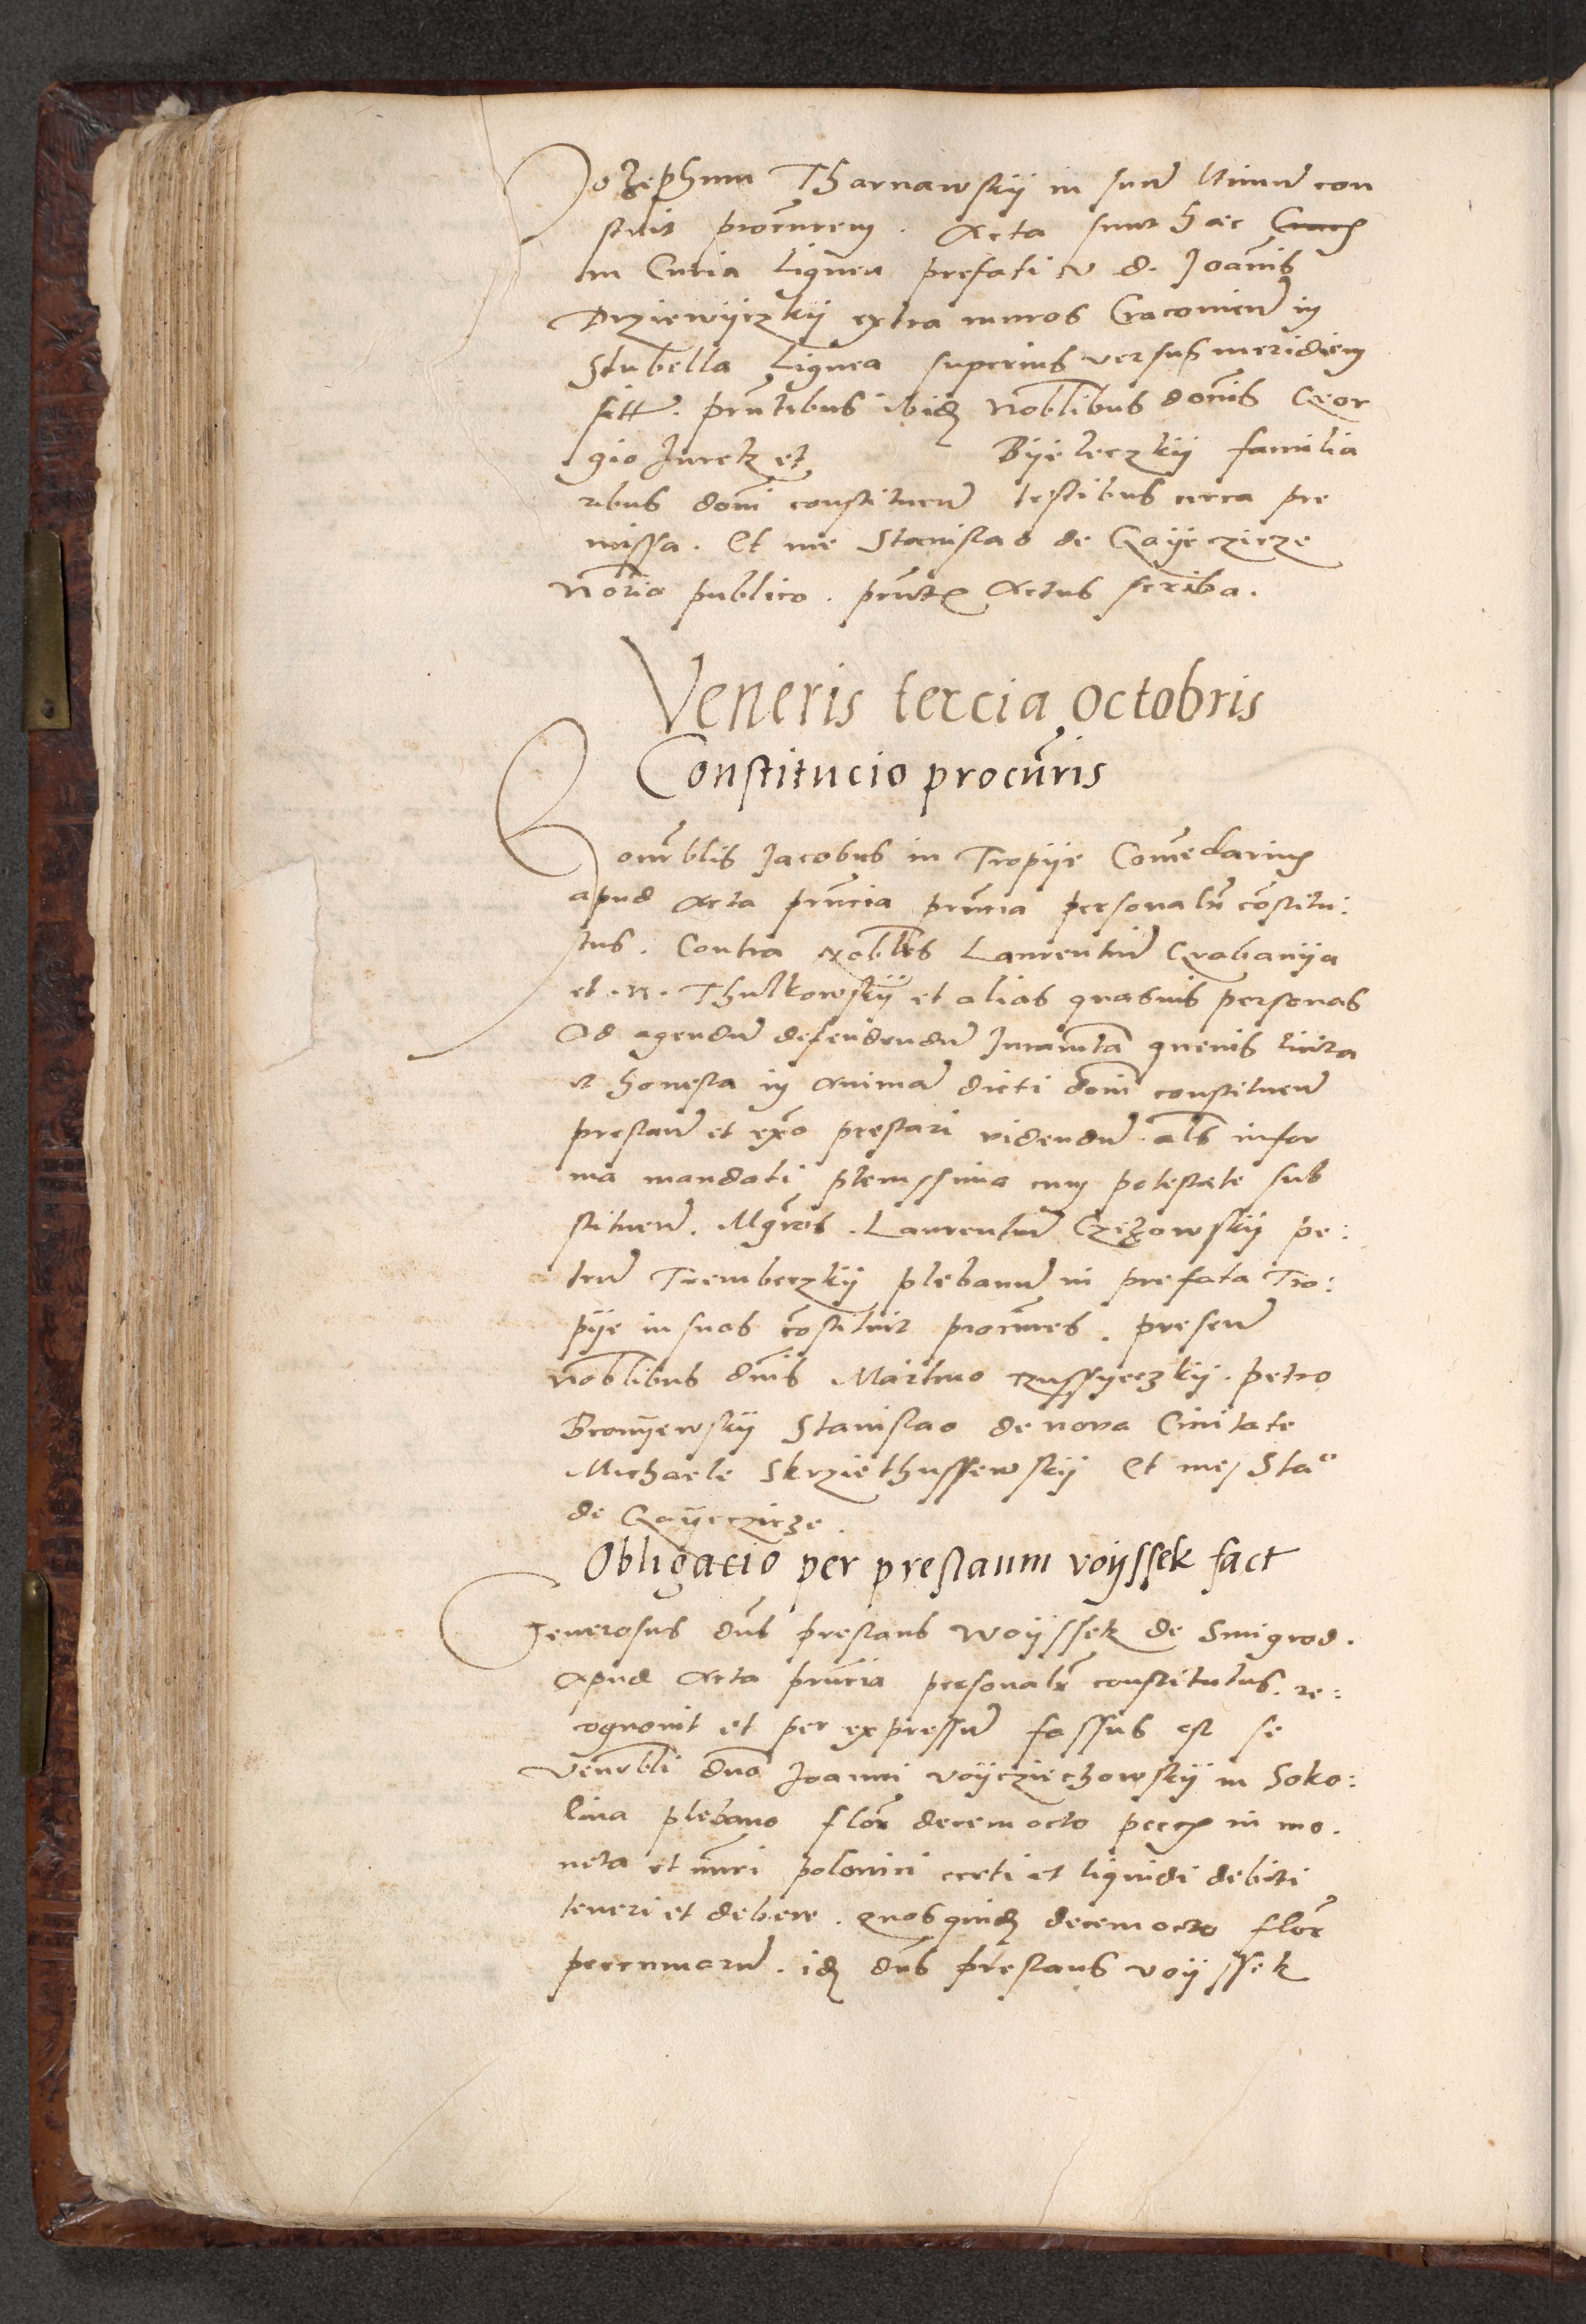 Jozephum Tharnawskij in suum limum con
stituit procurem. Acta sunt haec Crac
in Curia lignea prefati v d. Joannis
Drziewijczkij extra muros Cracovien in
Stubella lignea superius versus meridiem
sitt. pntibus ibidem noblibus donis Geor
gio Juretz et Byeleczkij familia
ribus domi constituen testibus circa pre
missa. Et me Stanislao de Gayeczicze
norio publico. pntis Actus scriba.
Veneris tercia octobris
Constitucio procuris
Honorblis Jacobus in Tropije Comedarius
apud Acta prncia prncia personalr constitu:
tus. Contra nobles Laurentium Grabanija
et .N. Thulkowskij et alias quasvis personas
Ad agendum defendendum Juramta quevis licita
et honesta in animam dicti domi constituen
prestan et exo prestari videndum als in for
ma mandati plenissima cum potestate sub
stituen. Mgros. Laurentium Czizowskij pe:
trum Trembeczkij plebanum in prefata Tro:
pije in suos constituit procures. presen
noblibus dnis Martino russyeczkij. petro
Bronyewskij Stanislao de nova Civitate
Michaele Skrziethussewskij Et me Stao
de Gayeczicze.
Obligacio per prestanm voijssek fact
Generosus dns prestans woijssek de Smigrod.
apud Acta prncia personalr constitutus. re:
cognovit et per expressum fassus est se
venorbli dno Joanni voijcziechowskij in Soko:
lina plebano flor decem octo pecc in mo.
neta et numri polonici certi et liquidi debiti
teneri et debere. quos quidem decem octo flor
peccuniarum. idem dns prestans voijssek